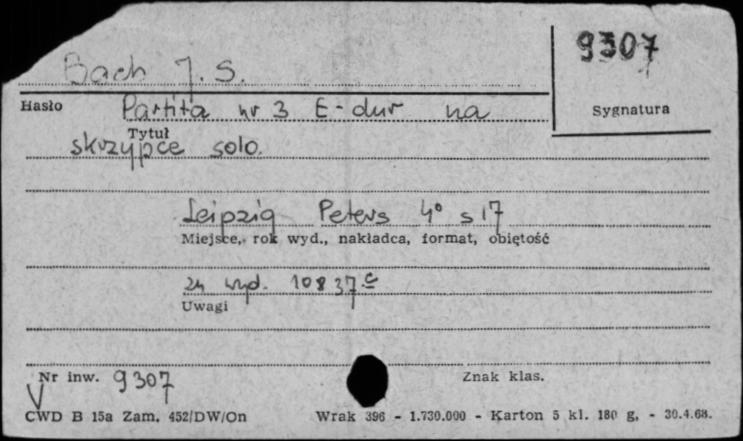 9307
Bach J. S.
Hasło Partita nr 3 E-dur na
Sygnatura
Tytuł
skrzypce solo.
Leipzig Peters 4° s 17
Miejsce, rok wyd., nakładca, format, objętość
zn wyd. 10837 c
Uwagi
Nr inw. 9307
Znak klas.
V
CWD B 15a Zam. 452/DW/On Wrak 396 - 1.730.000 - Karton 5 kl. 180 g. - 30.4.68.